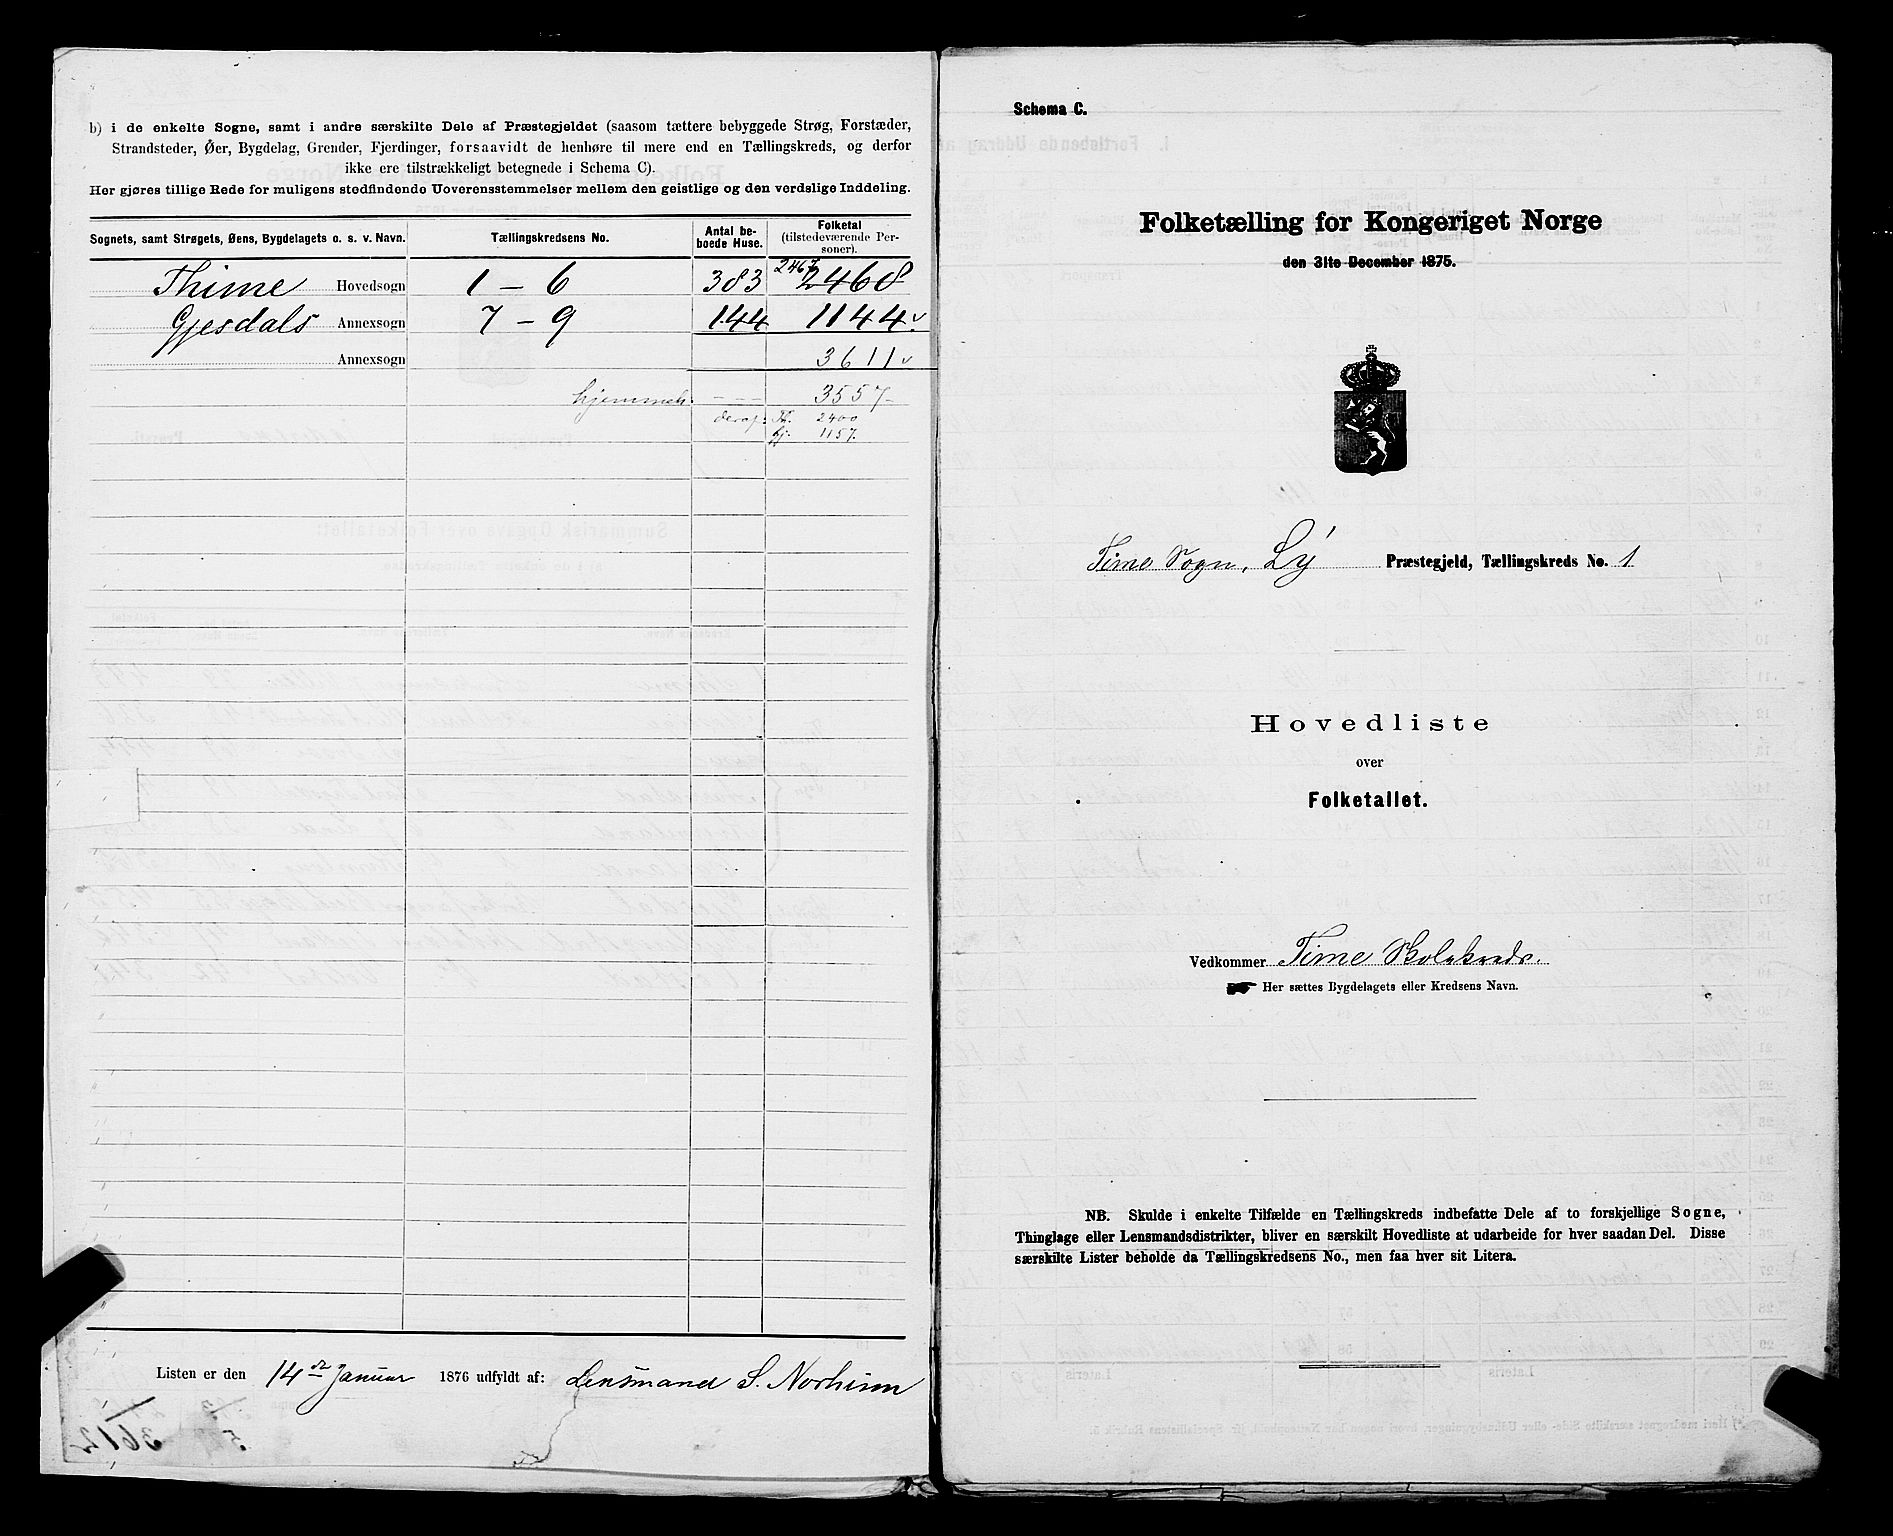 b) i de enkelte Sogne, samt i andre særskilte Dele af Præstegjeldet (saasom tættere bebyggede Strøg, Forstæder,
Strandsteder, Øer, Bygdelag, Grender, Fjerdinger, forsaavidt de henhøre til mere end en Tællingskreds, og derfor
ikke ere tilstrækkeligt betegnede i Schema C).
Her gjøres tillige Rede for muligens stedfindende Uoverensstemmelser mellem den geistlige og den verdslige Inddeling.
Sognets, samt Strøgets, Øens, Bygdelagets o. s. v. Navn. Tællingskredsens No. Antal beboede Huse. Folketal (tilstedeværende Personer).
Thime Hovedsogn 1 - 6 383 2467 2468
Gjesdals Annexsogn 7 - 9 144 1144 v
Annexsogn 3611 v
hjemmeh: - - - 3557 -
deraf: Th. 2400
Gj. 1157.
Listen er den 14de Januar 1876 udfyldt af: Lensmand S. Norheim
Schema C.
Folketælling for Kongeriget Norge
den 31te December 1875.
Time Sogn, Ly Præstegjeld, Tællingskreds No. 1
Hovedliste
over
Folketallet.
Vedkommer Time Skolekreds.
Her sættes Bygdelagets eller Kredsens Navn.
NB. Skulde i enkelte Tilfælde en Tællingskreds indbefatte Dele af to forskjellige Sogne,
Thinglage eller Lensmandsdistrikter, bliver en særskilt Hovedliste at udarbeide for hver saadan Del. Disse
særskilte Lister beholde da Tællingskredsens No., men faa hver sit Litera.